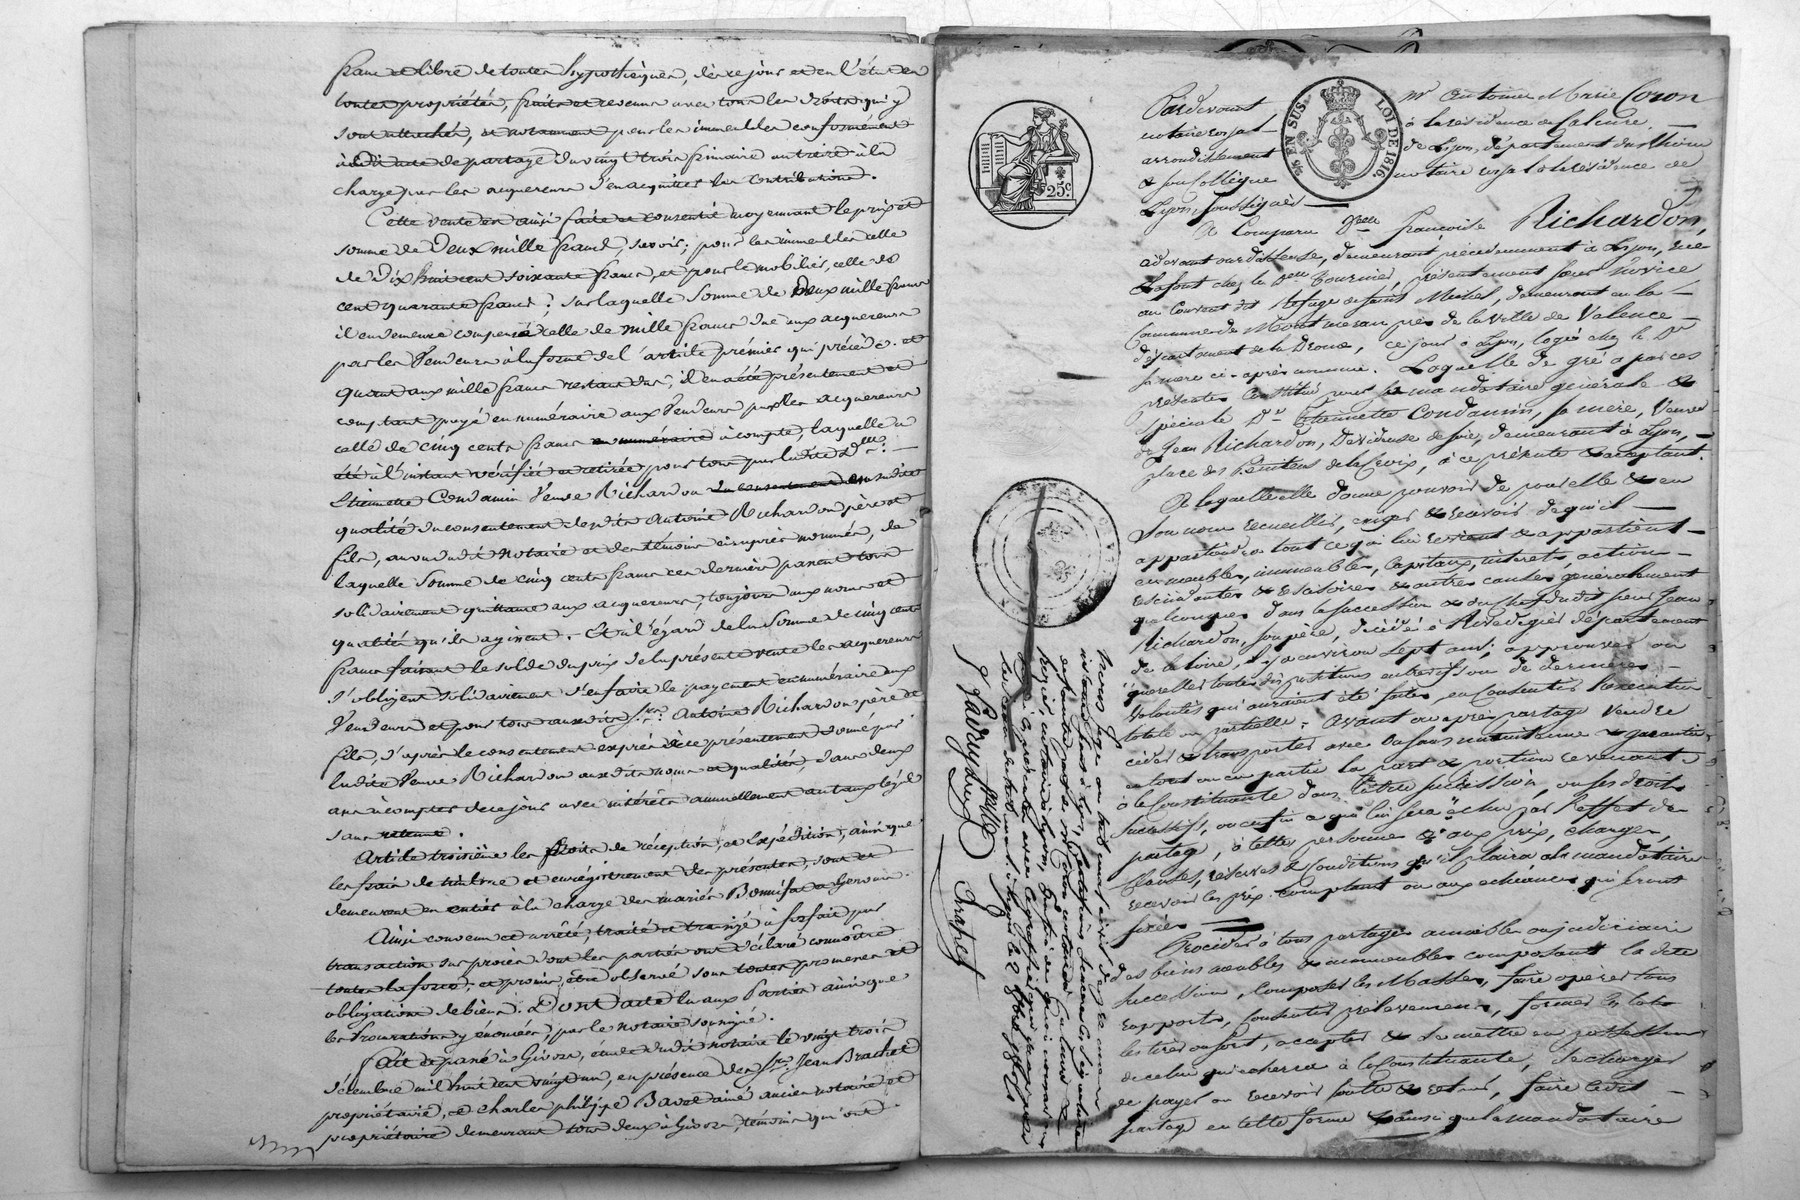 franc et libre de toutes hypothèques, dès ce jour et en l'état en
toutes propriétés, fruits et revenus avec tous les droits qui y
sont attachés, et notamment pour les immeubles conformément
à l'acte de partage du vingt trois frimaire an treize à la
charge par les acquereurs d'en acquitter les contributions.
Cette vente est ainsi faite et consentie moyennant le prix et
somme de Deux mille francs, savoir; pour les immeubles celle
de Dix huit cent soixante francs, et pour le mobilier, celle de
cent quarante francs; sur laquelle somme de Deux mille francs
il en demeure compensé celle de mille francs due aux acquereurs
par les Vendeurs à la forme de l'article prémier qui précède. et
quant aux mille francs restant dus, il en a été présentement et
comptant payé en numéraire aux Vendeurs par les acquereurs
celle de cinq cents francs à compte, laquelle a
été à l'instant vérifiée et retirée pour tous par ladite D.me
Etiennette Condamin Veuve Richardon en sa dite
qualité du consentement desdits Antoine Richardon père et
fils, au vu dudit notaire et des témoins ci après nommés, de
laquelle somme de cinq cents francs ces derniers passent tous
solidairement quittance aux acquereurs, toujours aux noms et
qualités qu'ils agissent. Et à l'égard de la somme de cinq cents
francs faisant le solde du prix de la présente vente les acquereurs
s'obligent solidairement d'en faire le payement en numéraire aux
Vendeurs et pour tous auxdits S.rs Antoine Richardon père et
fils, d'après le consentement exprès de ce présentement donné par
ladite Veuve Richardon auxdits noms et qualités, dans deux
ans à compter de ce jour avec intérêts annuellement au taux légal
sans retenue.
Article troisième les droits de réception, et Expédition, ainsi que
les frais de timbre et enrégistrement des présentes, sont et
demeurent en entier à la charge des mariés Bonnifat et Gervais.
Ainsi convenu et arrêté, traité et transigé à forfait par
transaction sur procès dont les parties ont déclaré connoître
toute la force, et promis être observé sous toutes promesses et
obligations de biens. Dont acte lu aux Parties ainsi que
les Procurations y énoncées, par le notaire soussigné.
Fait et passé à Givors, étude dudit notaire le vingt trois
décembre mil huit cent vingt un, en présence des Srs. Jean Brachet
propriétaire, et charles philippe Bavoz ainé ancien notaire et
propriétaire demeurant tous deux à Givors, témoins qui ont
25.c
¼ EN SUS. LOI DE 1816.
Pardevant M.e Antoine Marie Coron
notaire royal à la résidence de Caluire
arrondissement de Lyon, département du Rhône
& son Collègue notaire royal à la résidence de
Lyon, soussignés
A Comparu D.lle françoise Richardon,
cidevant ourdisseuse, demeurant précédemment à Lyon, rue
Lafont chez le S.r Tournier, présentement soeur Novice
au Couvent du Refuge de saint Michel, demeurant en la
Commune de Montmeran près de la ville de Valence
département de la Drome, ce jour à Lyon, logée chez la D.e
sa mere ci-après nommée. Laquelle de gré a par ces
présentes constitué pour sa mandataire générale &
spéciale D.e Etiennette Condamin, sa mère, Veuve
de Jean Richardon, Dévideuse de soie, demeurant à Lyon,
place des Pénitens de la Croix, à ce présente & acceptant.
A laquelle elle donne pouvoir de pour elle & en
son nom recueillir, exiger & recevoir de qui il
appartiendra tout ce qui lui revient & appartient
en meubles, immeubles, Capitaux, intérets, action
rescindantes & rescisoires & autres causes généralement
quelconques dans la succession & du Chef dudit sieur Jean
Richardon, son père, décédé à Rivedegier département
de la loire, il y a environ sept ans; approuver ou
quereller toutes dispositions entrevifs ou de dernières
volontés qu'auraient été faites, en Consentir l'exécution
totale ou partielle; avant ou après partage vendre
céder & transporter avec ou sans maintenue & garantie
en tout ou en partie la part & portion revenant
à la Constituante dans ladite succession, ou ses droits
successifs, ou enfin ce qui lui sera échu par l'effet du
partage, à telles personnes & aux prix, charges,
Clauses, réserves & Conditions qu'il plaira à la mandataire
recevoir les prix comptant ou aux echéances qui seront
fixées
Procéder à tous partages amiables ou judiciaires
des biens meubles & immeubles composant la dite
succession, Composer les Masses, faire opérer tous
rapports, Consentir prélevemens, former les lots
les tirer au sort, accepter & se mettre en possession
de celui qui echerra à la Constituante, se charger
de payer ou recevoir soulte & retour, faire ledit
partage en telle forme & ainsi que la mandataire